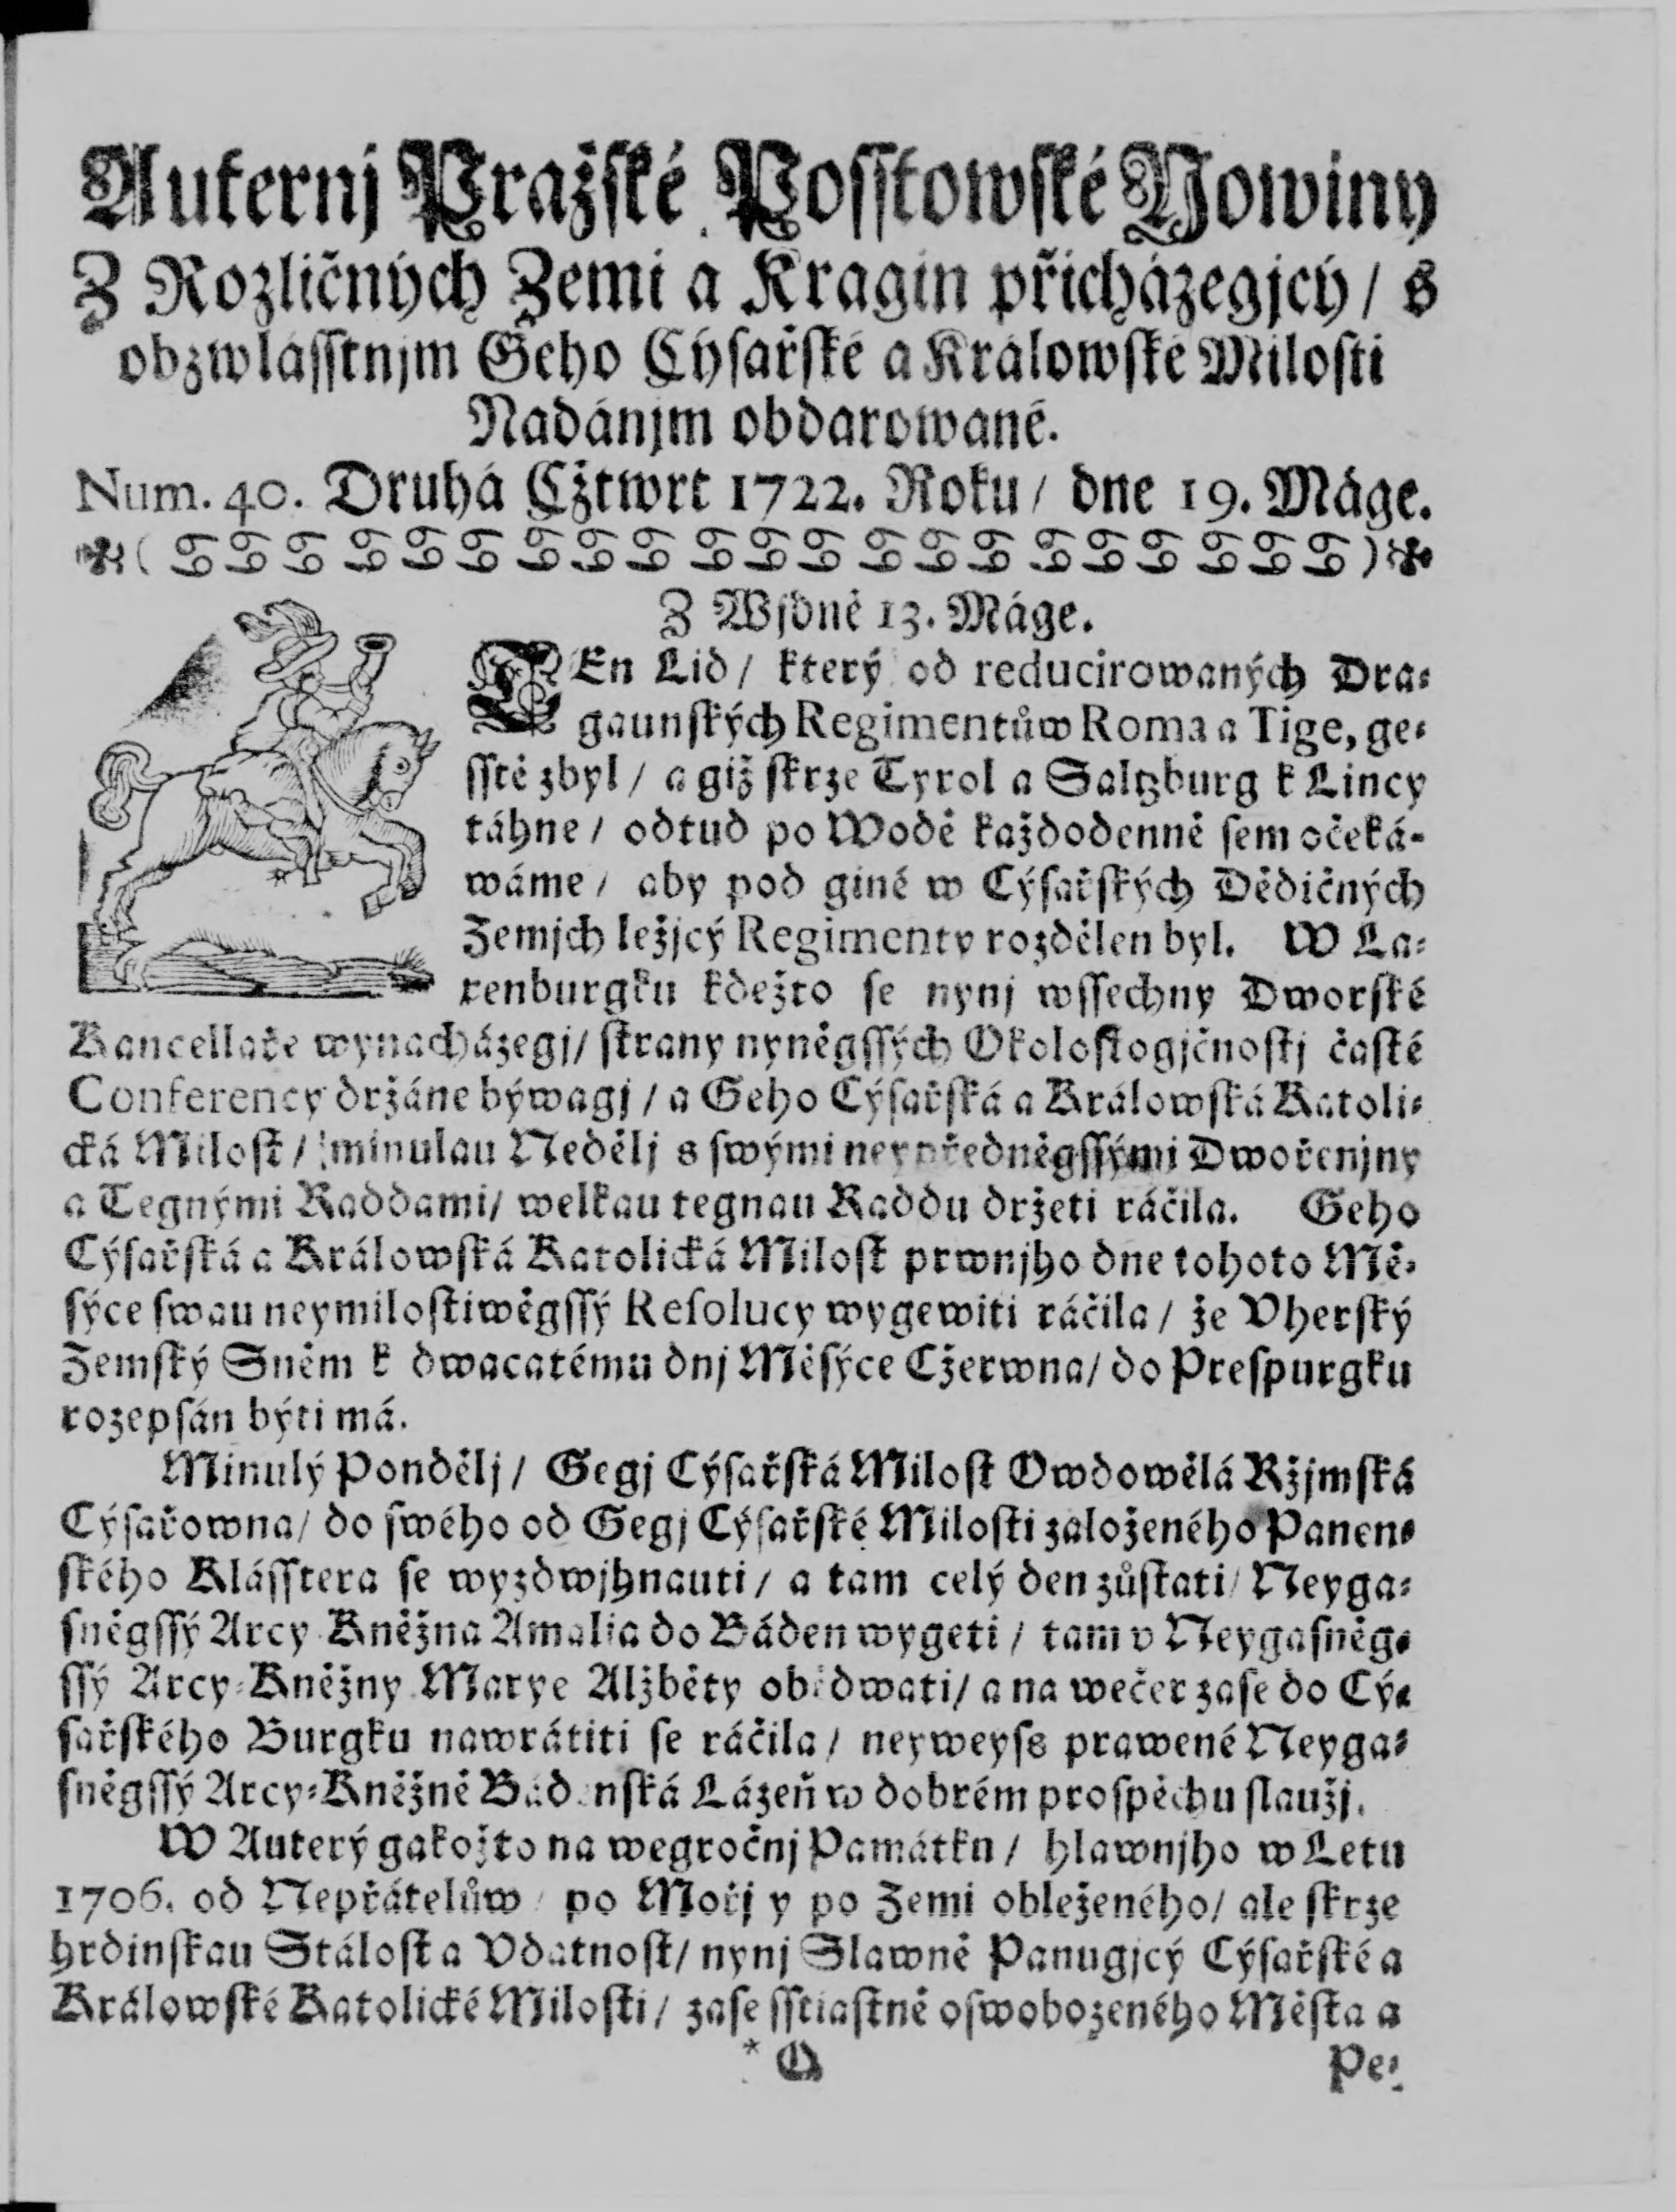 Auternj Pražské Posstowské Nowiny
Z Rozličných Zemi a Kragin přicházegjcý / s
obzwlásstnjm Geho Cýsařské a Králowské Milosti
Nadánjm obdarowané.
Num. 40. Druhá Cžtwrt 1722. Roku / dne 19. Máge.
Z Wjdně 13. Máge.
TEn Lid / který od reducirowaných Dra-
gaunských Regimentůw Roma a Tige, ge-
sstě zbyl / a giž skrze Tyrol a Saltzburg k Lincy
táhne / odtud po Wodě každodenně sem očeká-
wáme / aby pod giné w Cýsařských Dědičných
Zemjch ležjcý Regimenty rozdělen byl. W La-
xenburgku kdežto se nynj wssechny Dworské
Kancellaře wynacházegj / strany nyněgssých Okolostogjčnostj časté
Conferency držáne býwagj / a Geho Cýsařská a Králowská Katoli-
cká Milost / minulau Nedělj s swými neypředněgssými Dwořenjny
a Tegnými Raddami / welkau tegnau Raddu držeti ráčila. Geho
Cýsařská a Králowská Katolická Milost prwnjho dne tohoto Mě-
sýce swau neymilostiwěgssý Resolucy wygewiti ráčila / že Vherský
Zemský Sněm k dwacatému dnj Měsýce Cžerwna / do Prespurgku
rozepsán býti má.
Minulý Pondělj / Gegj Cýsařská Milost Owdowělá Ržjmská
Cýsařowna / do swého od Gegj Cýsařské Milosti založeného Panen-
ského Klásstera se wyzdwjhnauti / a tam celý den zůstati / Neyga-
sněgssý Arcy Kněžna Amalia do Báden wygeti / tam v Neygasněg-
ssý Arcy-Kněžny Marye Alžběty obědwati / a na wečer zase do Cý-
sařského Burgku nawrátiti se ráčila / neyweyss prawené Neyga-
sněgssý Arcy-Kněžně Bádenská Lázeň w dobrém prospěchu slaužj.
W Auterý gakožto na wegročnj Památku / hlawnjho w Letu
1706. od Nepřátelůw / po Mořj y po Zemi obleženého / ale skrze
hrdinskau Stálost a Vdatnost / nynj Slawně Panugjcý Cýsařské a
Králowské Katolické Milosti / zase sstiastně oswobozeného Města a
* Q Pe-